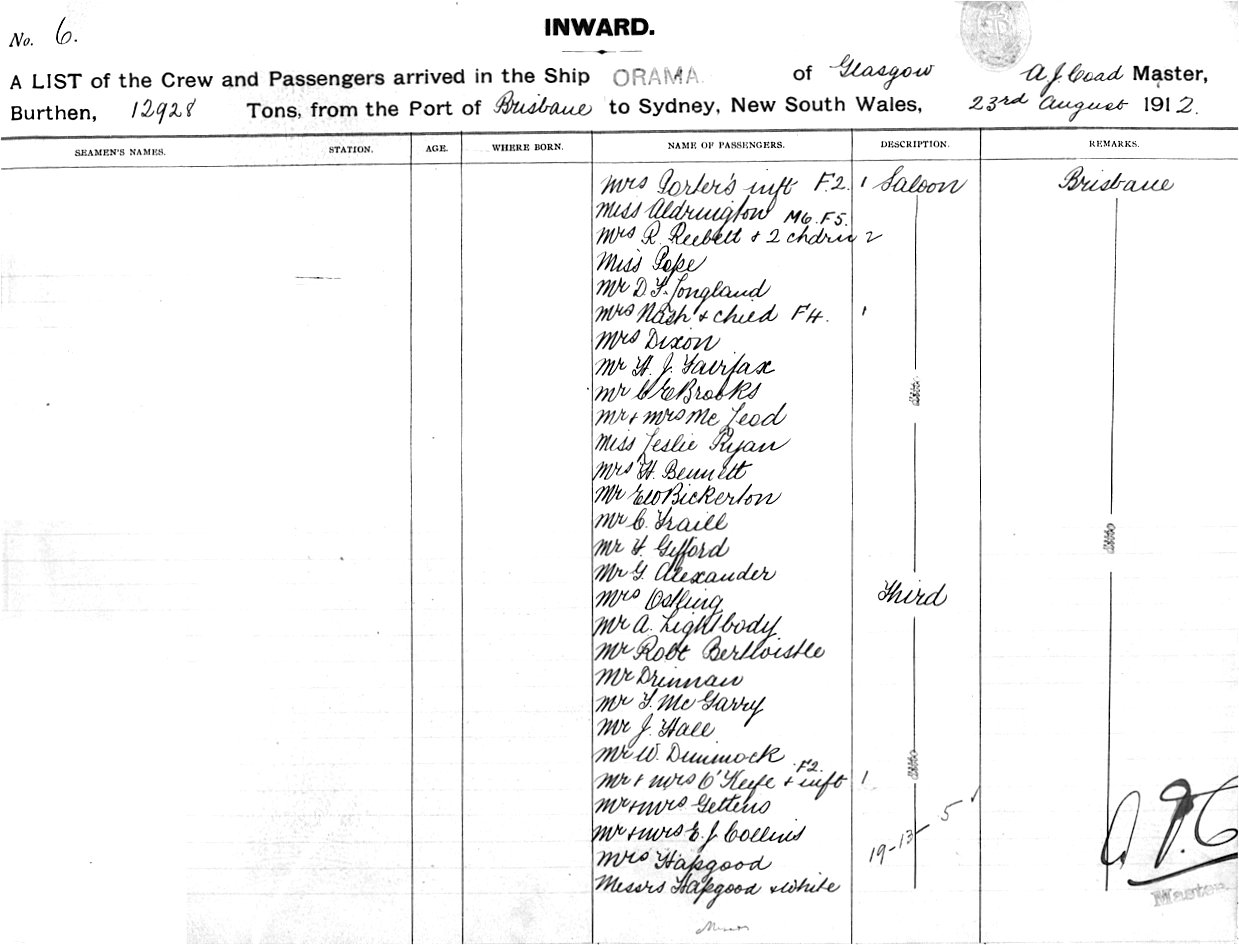 INWARD.
No. 6.
A LIST of the Crew and Passengers arrived in the Ship ORAMA of Glasgow A. J. Coad Master,
Burthen, 12928 Tons, from the Port of Brisbane to Sydney, New South Wales, 23rd August 1912.
SEAMEN'S NAMES. STATION. AGE. WHERE BORN. NAME OF PASSENGERS. DESCRIPTION. REMARKS.
Mrs Porter's inft F.2. 1 Saloon Brisbane
Miss Aldrington M6. F5.
Mrs R. Reebelt + 2 chdrn 2
Miss Pope
Mr D. F. Longland
Mrs Nash + child F4. 1
Mrs Dixon
Mr H. J. Fairfax
Mr C E Brooks
Mr + Mrs Mc Leod
Miss Leslie Ryan
Mrs H. Bennett
Mr E W Bickerton
Mr C. Traill
Mr F. Gifford
Mr G. Alexander
Mrs Ostling Third
Mr A. Lightbody
Mr Robt Bertwistle
Mr Drinnan
Mr F. Mc Garry
Mr J. Hall
Mr W. Dimmock
Mr + Mrs O'Keefe + inft F2. 1
Mr + Mrs Gettens
Mr + Mrs E. J. Collins
19-13- 5
Mrs Hapgood
Messrs Hapgood + White
Master.